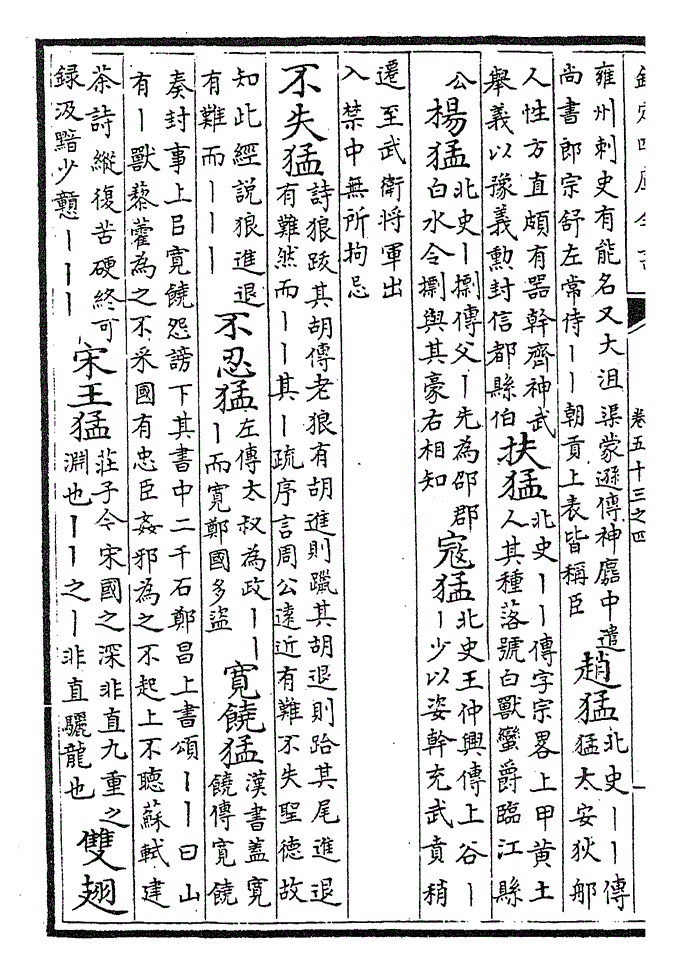 欽定四庫全書
卷五十三之四
雍州刺史有能名又大沮渠蒙遜傳神䴥中遣
尚書郎宗舒左常侍丨丨朝貢上表皆稱臣
趙猛
北史丨丨傳
猛太安狄那
人性方直頗有器幹齊神武
舉義以豫義勲封信都縣伯
扶猛
北史丨丨傳字宗畧上甲黄土
人其種落號白獸蠻爵臨江縣
公
楊猛
北史丨㯹傳父丨先為邵郡
白水令㯹與其豪右相知
寇猛
北史王仲興傳上谷丨
丨少以姿幹充武賁稍
遷至武衛將軍出
入禁中無所拘忌
不失猛
詩狼跋其胡傳老狼有胡進則躐其胡退則跲其尾進退
有難然而丨丨其丨疏序言周公遠近有難不失聖德故
知此經說狼進退
有難而丨丨丨
不忍猛
左傳太叔為政丨丨
丨而寬鄭國多盜
寬饒猛
漢書蓋寬
饒傳寬饒
奏封事上㠯寬饒怨謗下其書中二千石鄭昌上書頌丨丨曰山
有丨獸藜藿為之不采國有忠臣姦邪為之不起上不聽蘇軾建
茶詩縱復苦硬終可
録汲黯少戇丨丨丨
宋王猛
莊子今宋國之深非直九重之
淵也丨丨之丨非直驪龍也
雙翅